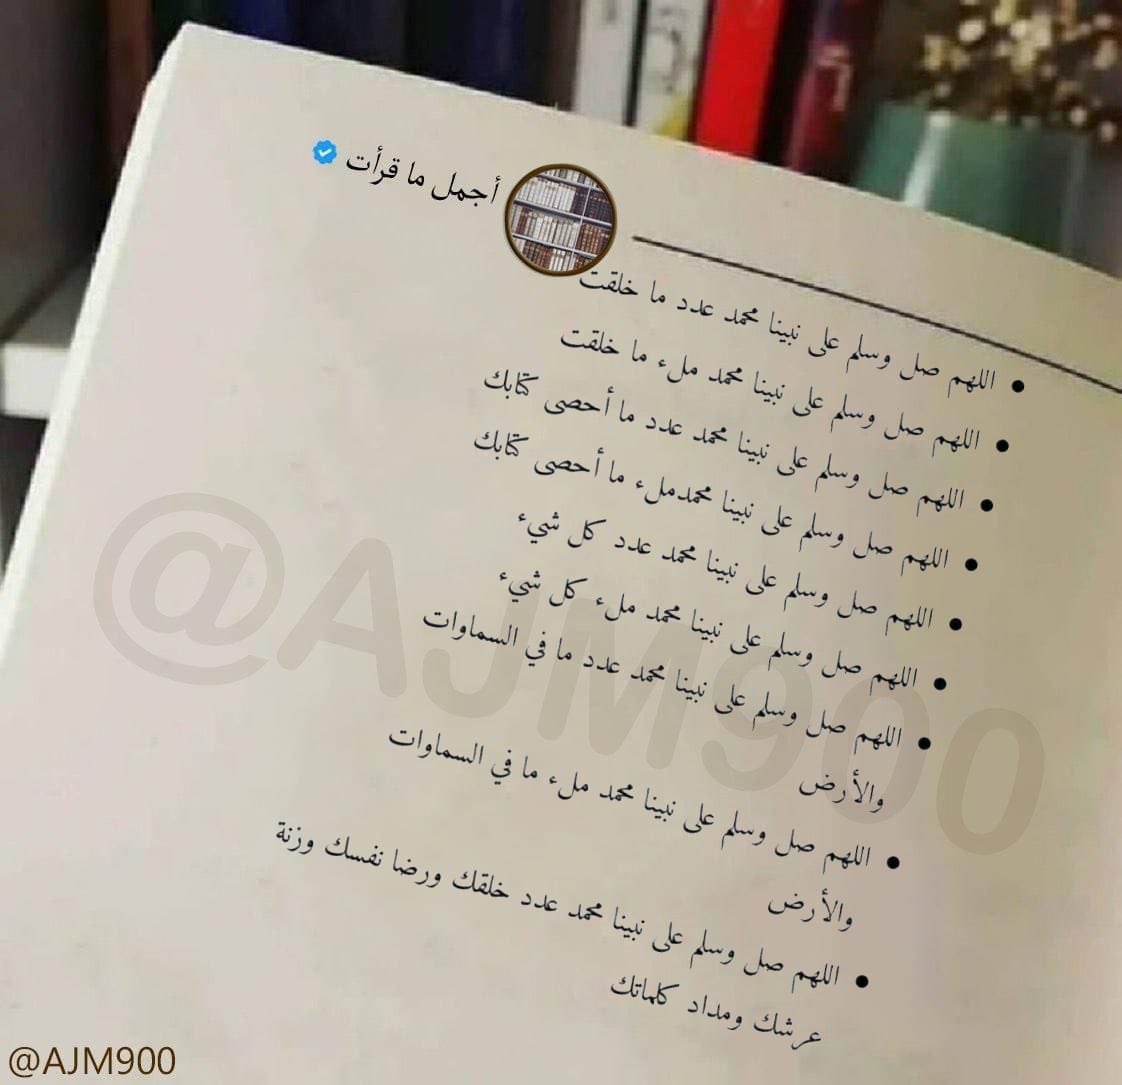 أجمل ما قرأت
• اللهم صل وسلم على نبينا محمد عدد ما خلقت
• اللهم صل وسلم على نبينا محمد ملء ما خلقت
• اللهم صل وسلم على نبينا محمد عدد ما أحصى كتابك
• اللهم صل وسلم على نبينا محمدملء ما أحصى كتابك
• اللهم صل وسلم على نبينا محمد عدد كل شيء
• اللهم صل وسلم على نبينا محمد ملء كل شيء
• اللهم صل وسلم على نبينا محمد عدد ما في السماوات
والأرض
• اللهم صل وسلم على نبينا محمد ملء ما في السماوات
والأرض
• اللهم صل وسلم على نبينا محمد عدد خلقك ورضا نفسك وزنة
عرشك ومداد كلماتك
@AJM900
@AJM900